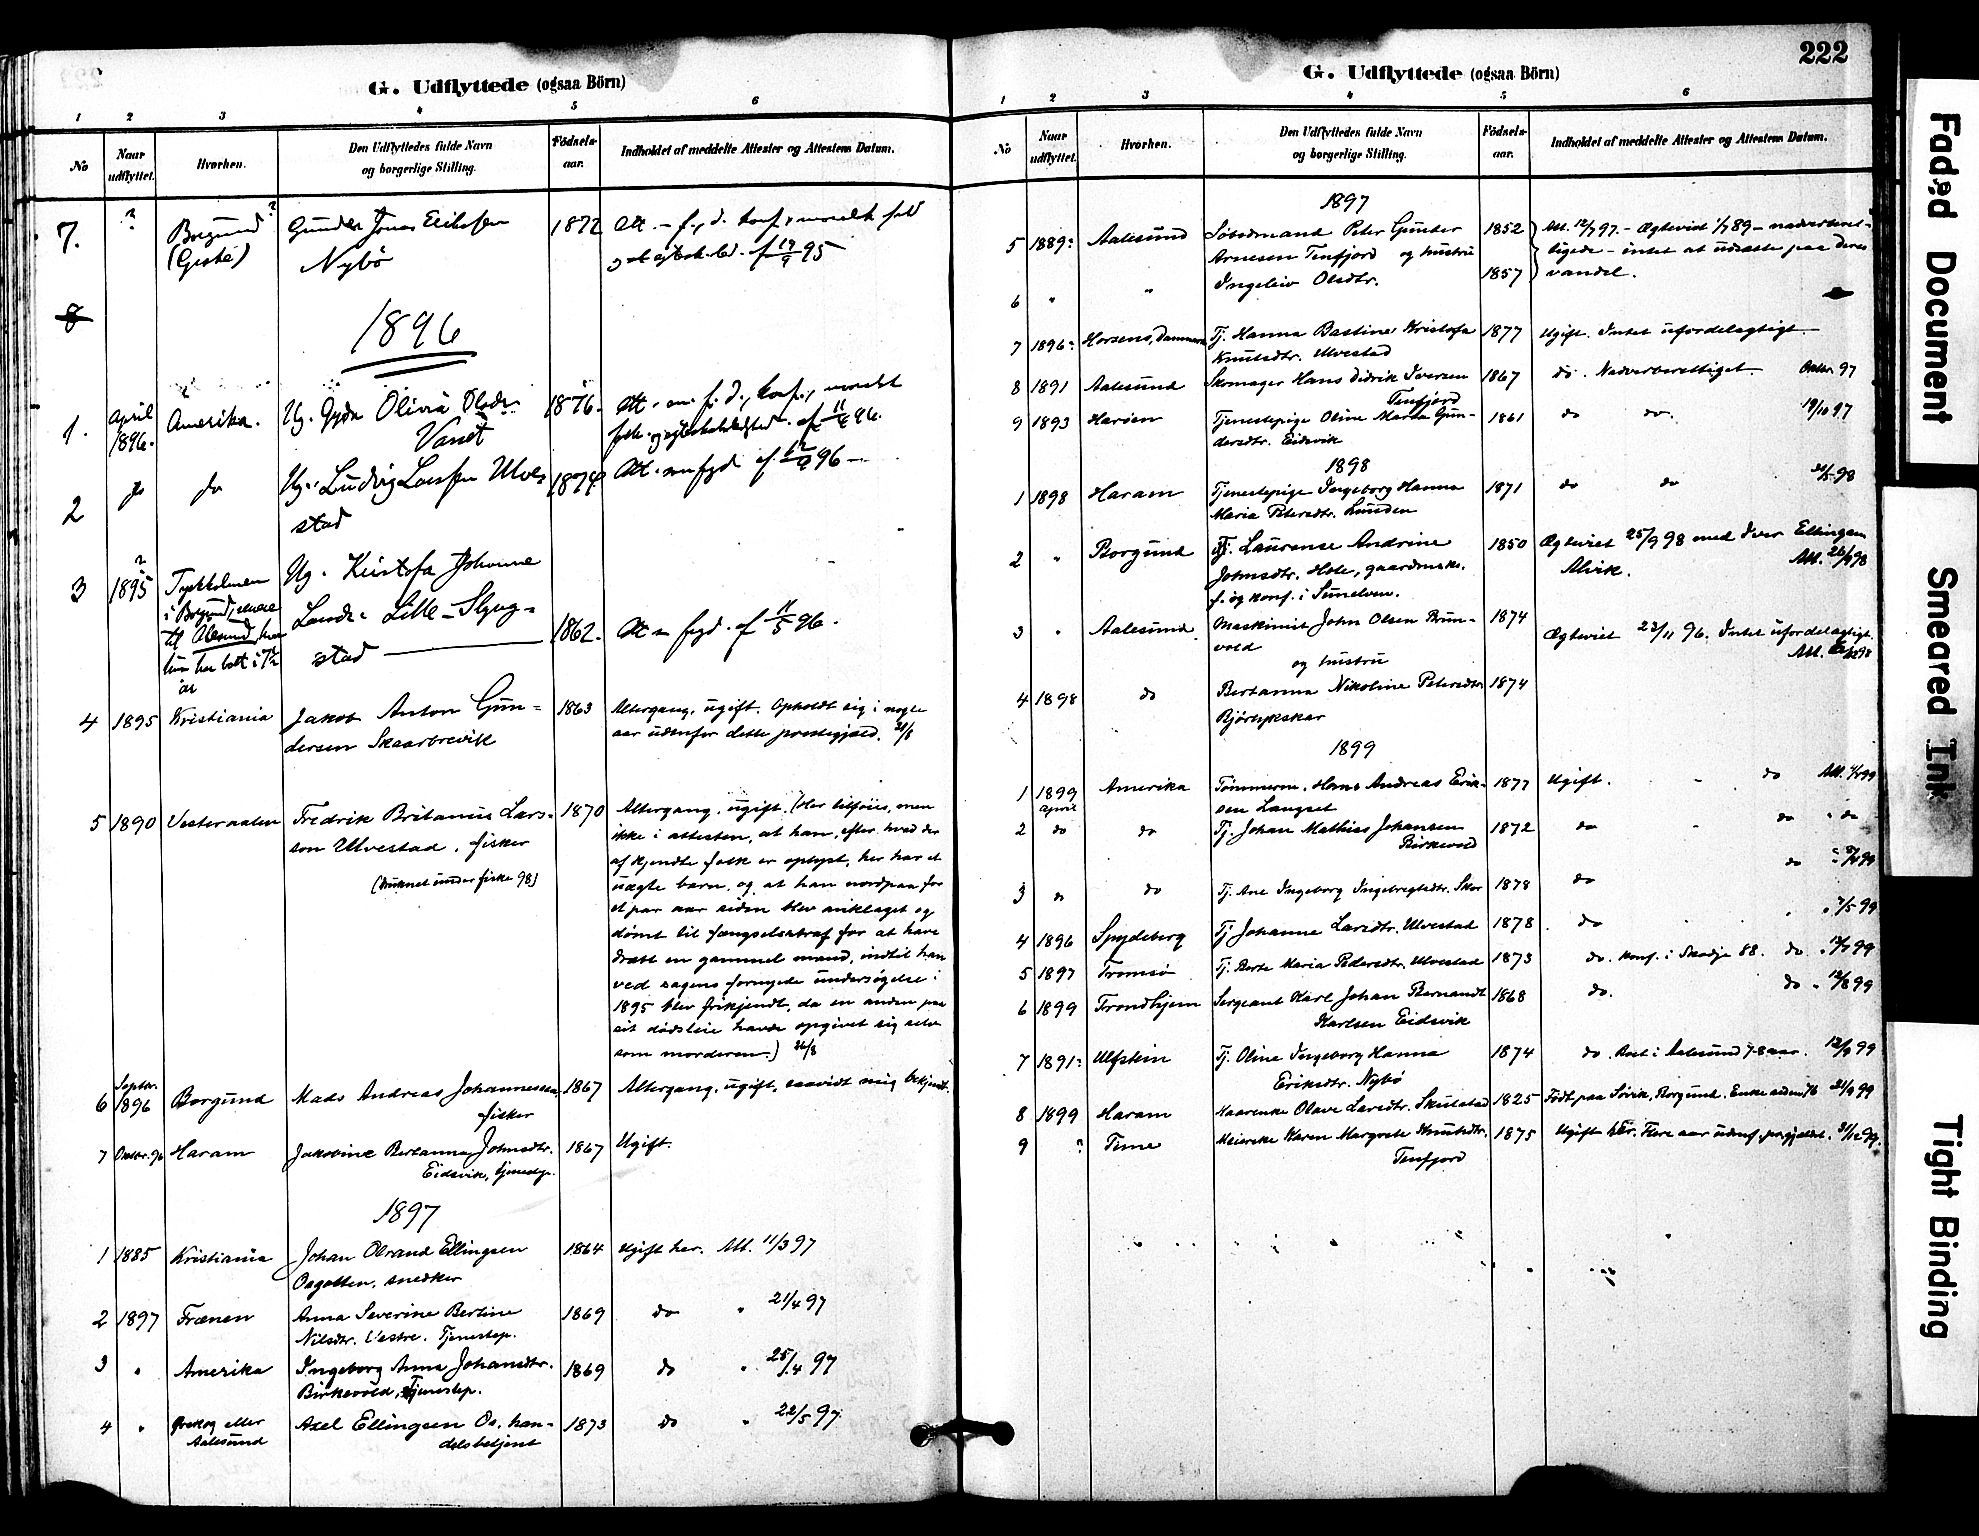 G. Udflyttede (ogsaa Börn)
1 2 3 4 5 6
No Naar udflyttet. Hvorhen. Den Udflyttedes fulde Navn og borgerlige Stilling. Födsels-aar. Indholdet af meddelte Attester og Attestens Datum.
7. ? Borgund ? Gunder Jonas 1872 Att. - f., d.
(Giske) Nybö 95
8
1896
1. April 1896. Amerika. Ug. Gyda Olivia 1876. Att.
Vanet 96.
2 do do Ug. Ludvig Ulve- 1874 Att. 96
stad
3 ? 1895 Ug. Kristofa
i Borgund, senere Lille-Skjug- 1862. Att. 11/5 96.
til Aalesund hvor stad
hun har bott i 7 1/2
år
4 1895 Kristiania Jakob Anton Gun- 1863 Altergang, ugift. Opholdt sig i nogle
dersen Skaarbrevik aar udenfor dette prestegjæld. 31/8
5 1890 Vesteraalen Fredrik Britanius Lars- 1870 Altergang, ugift. (Her tilföies, men
son Ulvestad, fisker ikke i attesten, at han, efter hvad der
(druknet under fiske 98) af kjendte folk er oplyst, her har et
uægte barn, og at han nordpaa for
et par aar siden blev anklaget og
dömt til fængselsstraf for at have
dræbt en gammel mand, indtil han
ved sagens fornyede undersögelse i
1895 blev frikjendt, da en anden paa
sit dödsleie havde opgivet sig selv
som morderen.) 26/8
6 Septbr. 1896 Borgund Mads Andreas Johannessen 1867 Altergang, ugift, saavidt mig bekjendt.
fisker
7 Oktbr. 96 Haram Jakobine Bertanna Johnsdtr. 1867 Ugift.
Eidsvik, tjenestp.
1897
1 1885 Kristiania Johan Olvand Ellingsen 1864 Ugift her. Att. 11/3 97
snedker
2 1897 Frænen Anna Severine Bertine 1869 do " 21/4 97
Nilsdtr. Vestre. Tjenestep.
3 " Amerika Ingeborg Anna Johansdtr. 1869 do " 25/4 97
Birkevold, Tjenestep.
4 " Ørskog eller Axel Ellingsen Os, han- 1873 do " 22/5 97
Aalesund delsbetjent
222
G. Udflyttede (ogsaa Börn)
1 2 3 4 5 6
No Naar udflyttet. Hvorhen. Den Udflyttedes fulde Navn og borgerlige Stilling. Födsels-aar. Indholdet af meddelte Attester og Attestens Datum.
1897
5 1889? Aalesund Peter Gunder 1852 Att. 12/7 97. - Ægteviet 1/7 89 - nadverberet-
Arnesen Tenfjord og hustru tigede - intet at udsætte paa deres
6 " " Ingeleiv Olsdtr. 1857 vandel.
7 1896? Horsens, Danmark Tj. Hanna Bastine Kristofa 1877 Ugift. Intet ufordelagtigt.
Knutsdtr. Ulvestad
8 1891 Aalesund Skomager Hans Didrik Iversen 1867 do. Nadverberettiget. Oktbr. 97
Tenfjord
9 1893 Haröen Tjenestepige Oline Marta Gun- 1861 do do. 19/10 97
dersdtr. Eidsvik
1898
1 1898 Haram Tjenestepige Ingeborg Hanna 1871 do do 98
Maria Petersdtr. Lunden
2 " Borgund Tj. Laurense Andrine 1850 Ægteviet 25/9 98 med Iver Ellingsen
Johnsdtr. Hole, gaardmske. Alvik. Att. 26/9 98
f. og konf. i Sunelven.
3 " Aalesund Maskinist John Olsen Brun- 1874 Ægteviet 23/11 96. Intet ufordelagtigt.
vold Att. 98
og hustru
4 1898 do Bertanna Nikoline Petersdtr 1874
1899
1 1899 April Amerika Tömmerm. Hans Andreas Erik- 1877 Ugift. do Att. 99
sen Langset
2 do do Tj. Johan Mathias Johansen 1872 do do " do
Birkevold
3 do do Tj. Ane Ingeborg Ingebregtsdtr. Skor 1878 do do 99
4 1896 Spydeberg Tj. Johanne Larsdtr. Ulvestad 1878 do " 7/5 99
5 1897 Tromsö Tj. Berte Maria Pedersdtr. Ulvestad 1873 do. Konf. i Skodje 88. do " 99
6 1899 Trondhjem Sergeant Karl Johan Bernandt 1868 do. do " 12/8 99
Karlsen Eidsvik
7 1891? Ulfstein Tj. Oline Ingeborg Hanna 1874 do. Boet i Aalesund 7-8 aar. 12/9 99
Eriksdtr. Nybö
8 1899 Haram Olave Larsdtr. Skulstad 1825 Födt paa Sövik, Borgund. Enke siden 76 21/9 99
9 ? Time Meierske Karen Margrete Knutsdtr. 1875 Ugift her. Flere aar udenf. prgjeldet. 31/12 99.
Tenfjord
Faded Document
Smeared Ink
Tight Binding